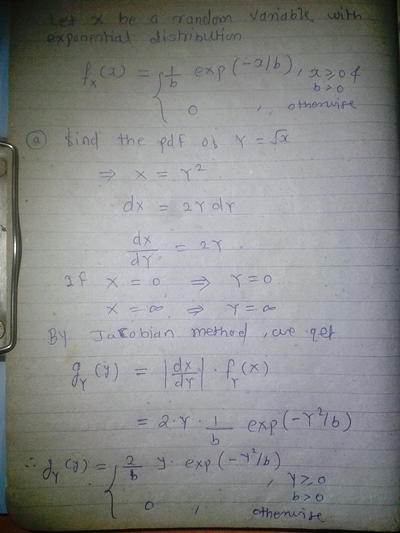 Let x be a random variable with
exponential distribution
f_x(x) = { 1/b exp(-x/b), x≥0 &
b>0
0 , otherwise
(a) find the pdf of Y = √x
⇒ x = Y²
dx = 2Y dY
dx/dY = 2Y.
If x = 0 ⇒ Y = 0
x = ∞ ⇒ Y = ∞
By Jacobian method, we get
g_Y(y) = |dx/dY| · f_Y(x)
= 2·Y · 1/b exp(-Y²/b)
∴ g_Y(y) = { 2/b y · exp(-Y²/b)
, Y≥0
b>0
0 , otherwise